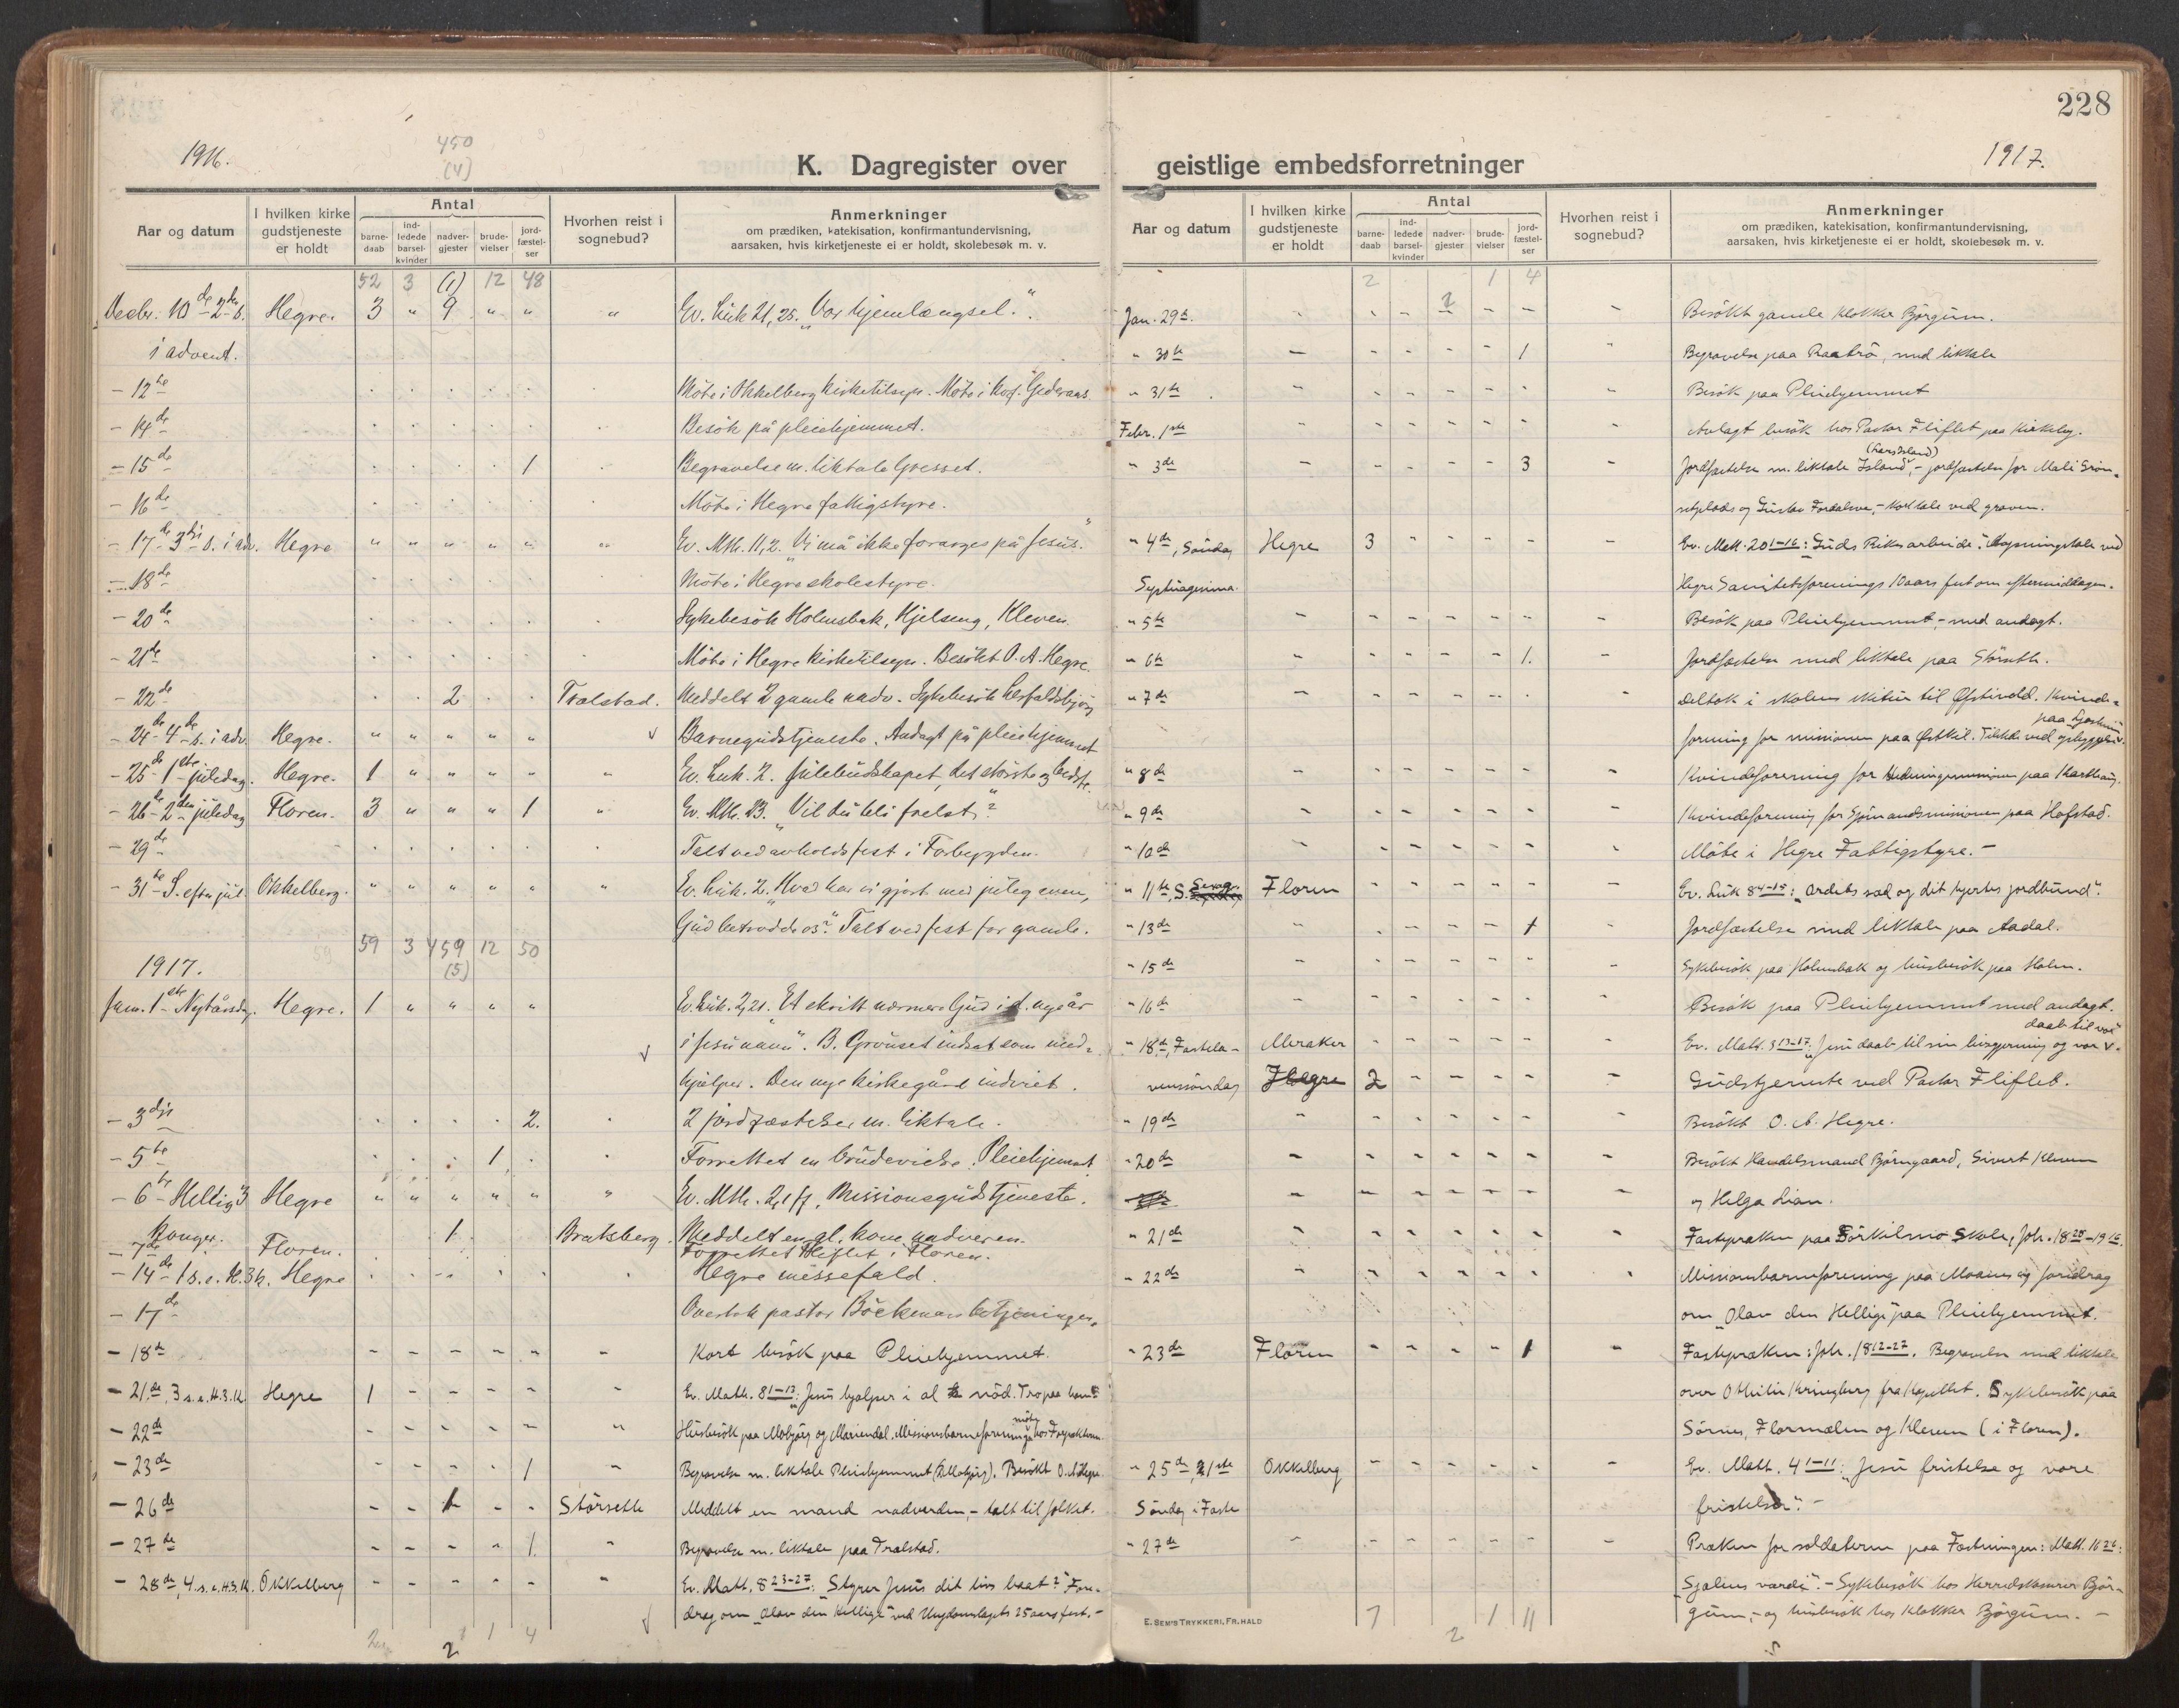 228
1916.
450
(4)
K. Dagregister over
geistlige embedsforretninger
1917.
Aar og datum
I hvilken kirke gudstjeneste er holdt
Antal
barne-daab
ind-ledede barsel-kvinder
nadver-gjester
brude-vielser
jord-fæstel-ser
Hvorhen reist i sognebud?
Anmerkninger
om prædiken, katekisation, konfirmantundervisning,
aarsaken, hvis kirketjeneste ei er holdt, skolebesøk m. v.
52 3 (1) 12 48
Decbr. 10de 2den s. Hegre. 3 " 9 " " " Ev. Luk 21, 25. "Vor hjemlængsel."
i advent.
- 12te Möte i Okkelberg kirketilsyn. Möte i
- 14de Besök på pleiehjemmet.
- 15de 1 Begravelse m. liktale Gresset.
- 16de Möte i Hegre fattigstyre.
- 17de 3dje s. i adv. Hegre " " " " " " Ev. Mth. 11,2. "Vi må ikke forarges på Jesus."
- 18de Möte i Hegre skolestyre.
- 20de Sykebesök Holmsbak, Hjelseng, Kleven.
- 21de Möte i Hegre kirketilsyn. Besökt O. A. Hegre.
- 22de 2 Trælstad. Meddelt 2 gamle nadv. Sykebesök
- 24de 4de s. i adv. Hegre. " " " " " Barnegudstjeneste. Andagt på pleiehjemmet
- 25de 1ste juledag. Hegre. 1 " " " " " Ev. Luk. 2. Julebudskapet, det störste og bedste.
- 26de 2den juledag Floren. 3 " " " 1 " Ev. Mth. 23. "Vil du bli frelst"?
- 29de Talt ved avholdsfest i Forbygden.
- 31te S. efter jul. Okkelberg. " " " " " " Ev. Luk. 2. "Hvad har vi gjort med julegaven,
Gud betrodde os". Talt ved fest for gamle.
59 59 3 459 12 50
(5)
1917.
Jan. 1ste Nytårsdag. Hegre. 1 " " " " Ev. Luk. 2,21. "Et skritt nærmere Gud i d. nye år
i Jesu navn". B. Grönset indsat som med-
hjælper. Den nye kirkegård indviet.
- 3dje 2. 2 jordfæstelser m. liktale.
- 5te 1 Forrettet en brudevielse. Pleiehjemmet
- 6te Hellig 3 Hegre " " " " " " Ev. Mth. 2,1 ff. Missionsgudstjeneste.
Konger. 1 Bratsberg. Meddelt en gl. kone nadveren.
- 7de Floren. Forrettet Fliflet i Floren.
- 14de 1 s. e. H.3k. Hegre Hegre messefald.
- 17de Overtok pastor Böckmans betjeninger.
- 18de Kort besök paa Pleiehjemmet.
- 21de, 3 s. e. H.3.K. Hegre 1 - - - - " Ev. Matth. 8 1-13: "Jesus hjælper i al nöd. Tro paa ham"
- 22de Husbesök paa Mobjörg og Mariendal. Missionsbarneforenings möte hos
- 23de 1 Begravelse m. liktale Pleiehjemmet (Mobjörg). Besökt O. A. Hegre.
- 26de 1 Störsette Meddelt en mand nadverden, - talt til folket.
- 27de 1. Begravelse m. liktale paa Trælstad.
- 28de, 4. s. e. H.3.K. Okkelberg Ev. Matt. 8 23-27: "Styrer Jesus dit livs baat?" Fore-
drag om "Olav den hellige" ved Ungdomslagets 25 aars fest. -
2 2 1 4
Aar og datum
I hvilken kirke gudstjeneste er holdt
Antal
barne-daab
ind-ledede barsel-kvinder
nadver-gjester
brude-vielser
jord-fæstel-ser
Hvorhen reist i sognebud?
Anmerkninger
om prædiken, katekisation, konfirmantundervisning,
aarsaken, hvis kirketjeneste ei er holdt, skolebesøk m. v.
2 2 1 4
Jan. 29de Besökt gamle klokker Björgum.
" 30te 1 Begravelse paa Raabrö, med liktale
" 31te Besök paa Pleiehjemmet
Febr. 1ste Avlagt besök hos Pastor Fliflet paa Kirkeby.
" 3de 3 Jordfæstelse m. liktale "Island" (Lars Island), - jordfæstelse for Mali Grön-
setplads og Gustav Fordalsve, - kort tale ved graven.
" 4de, Söndag Hegre 3 Ev. Matt. 20 1-16: "Guds Rikes arbeide". Aapningstale ved
Septuagesima. Hegre Sanitetsforenings 10 aars fest om eftermiddagen.
" 5te Besök paa Pleiehjemmet, - med andagt.
" 6te 1. Jordfæstelse med liktale paa Störsette.
" 7de Deltok i skolens skitur til Östivold. Kvinde-
forening for missionen paa Östkil.
" 8de Kvindeforening for Hedningemissionen paa Karlhaug.
" 9de Kvindeforening for Sjömandsmissionen paa Hofstad.
" 10de Möte i Hegre Fattigstyre. -
" 11te, S. Sexag. Floren Ev. Luk 8 4-15: "Ordets sæd og dit hjertes jordbund".
" 13de 1 Jordfæstelse med liktale paa Aadal.
" 15de Sykebesök paa Holmsbak og husbesök paa Holm.
" 16de Besök paa Pleiehjemmet med andagt.
" 18de, Fastela- Meraker Ev. Matt. 3 13-17: "Jesu daab til sin livsgjerning og vor daab til vor".
venssöndag Hegre 2 Gudstjeneste ved Pastor Fliflet.
" 19de Besökt O. A. Hegre.
" 20de Besökt Handelsmand Björngaard, Sivert Kleven
og Helga Lian.
" 21de Fastepræken paa Sörkilmo Skole, Joh. 18 28-19 16.
" 22de Missionsbarneforening paa Moanes og foredrag
om "Olav den Hellige" paa Pleiehjemmet.
" 23de Floren 1 Fastepræken: Joh. 18 12-27. Begravelse med liktale
over Othilie Kringberg fra Kapellet. Sykebesök paa
Sörnes, Flormælen og Kleven (i Floren).
" 25de, 1ste Okkelberg Ev. Matt. 4 1-11: "Jesu fristelse og vore
Söndag i Faste fristelser". -
" 27de Præken for soldaterne paa Fæstningen: Matt. 16 26:
"Sjælens værdi". - Sykebesök hos Herredskasserer Björ-
gum, - og husbesök hos Klokker Björgum. -
7 2 1 11
E. SEM'S TRYKKERI, FR.HALD